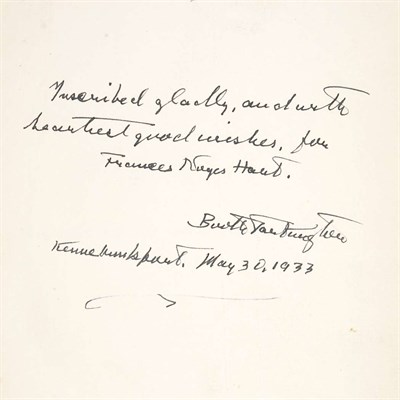 Inscribed gladly, and with
heartiest good wishes, for
Frances Noyes Hart.
Booth Tarkington
Kennebunkport. May 30, 1933